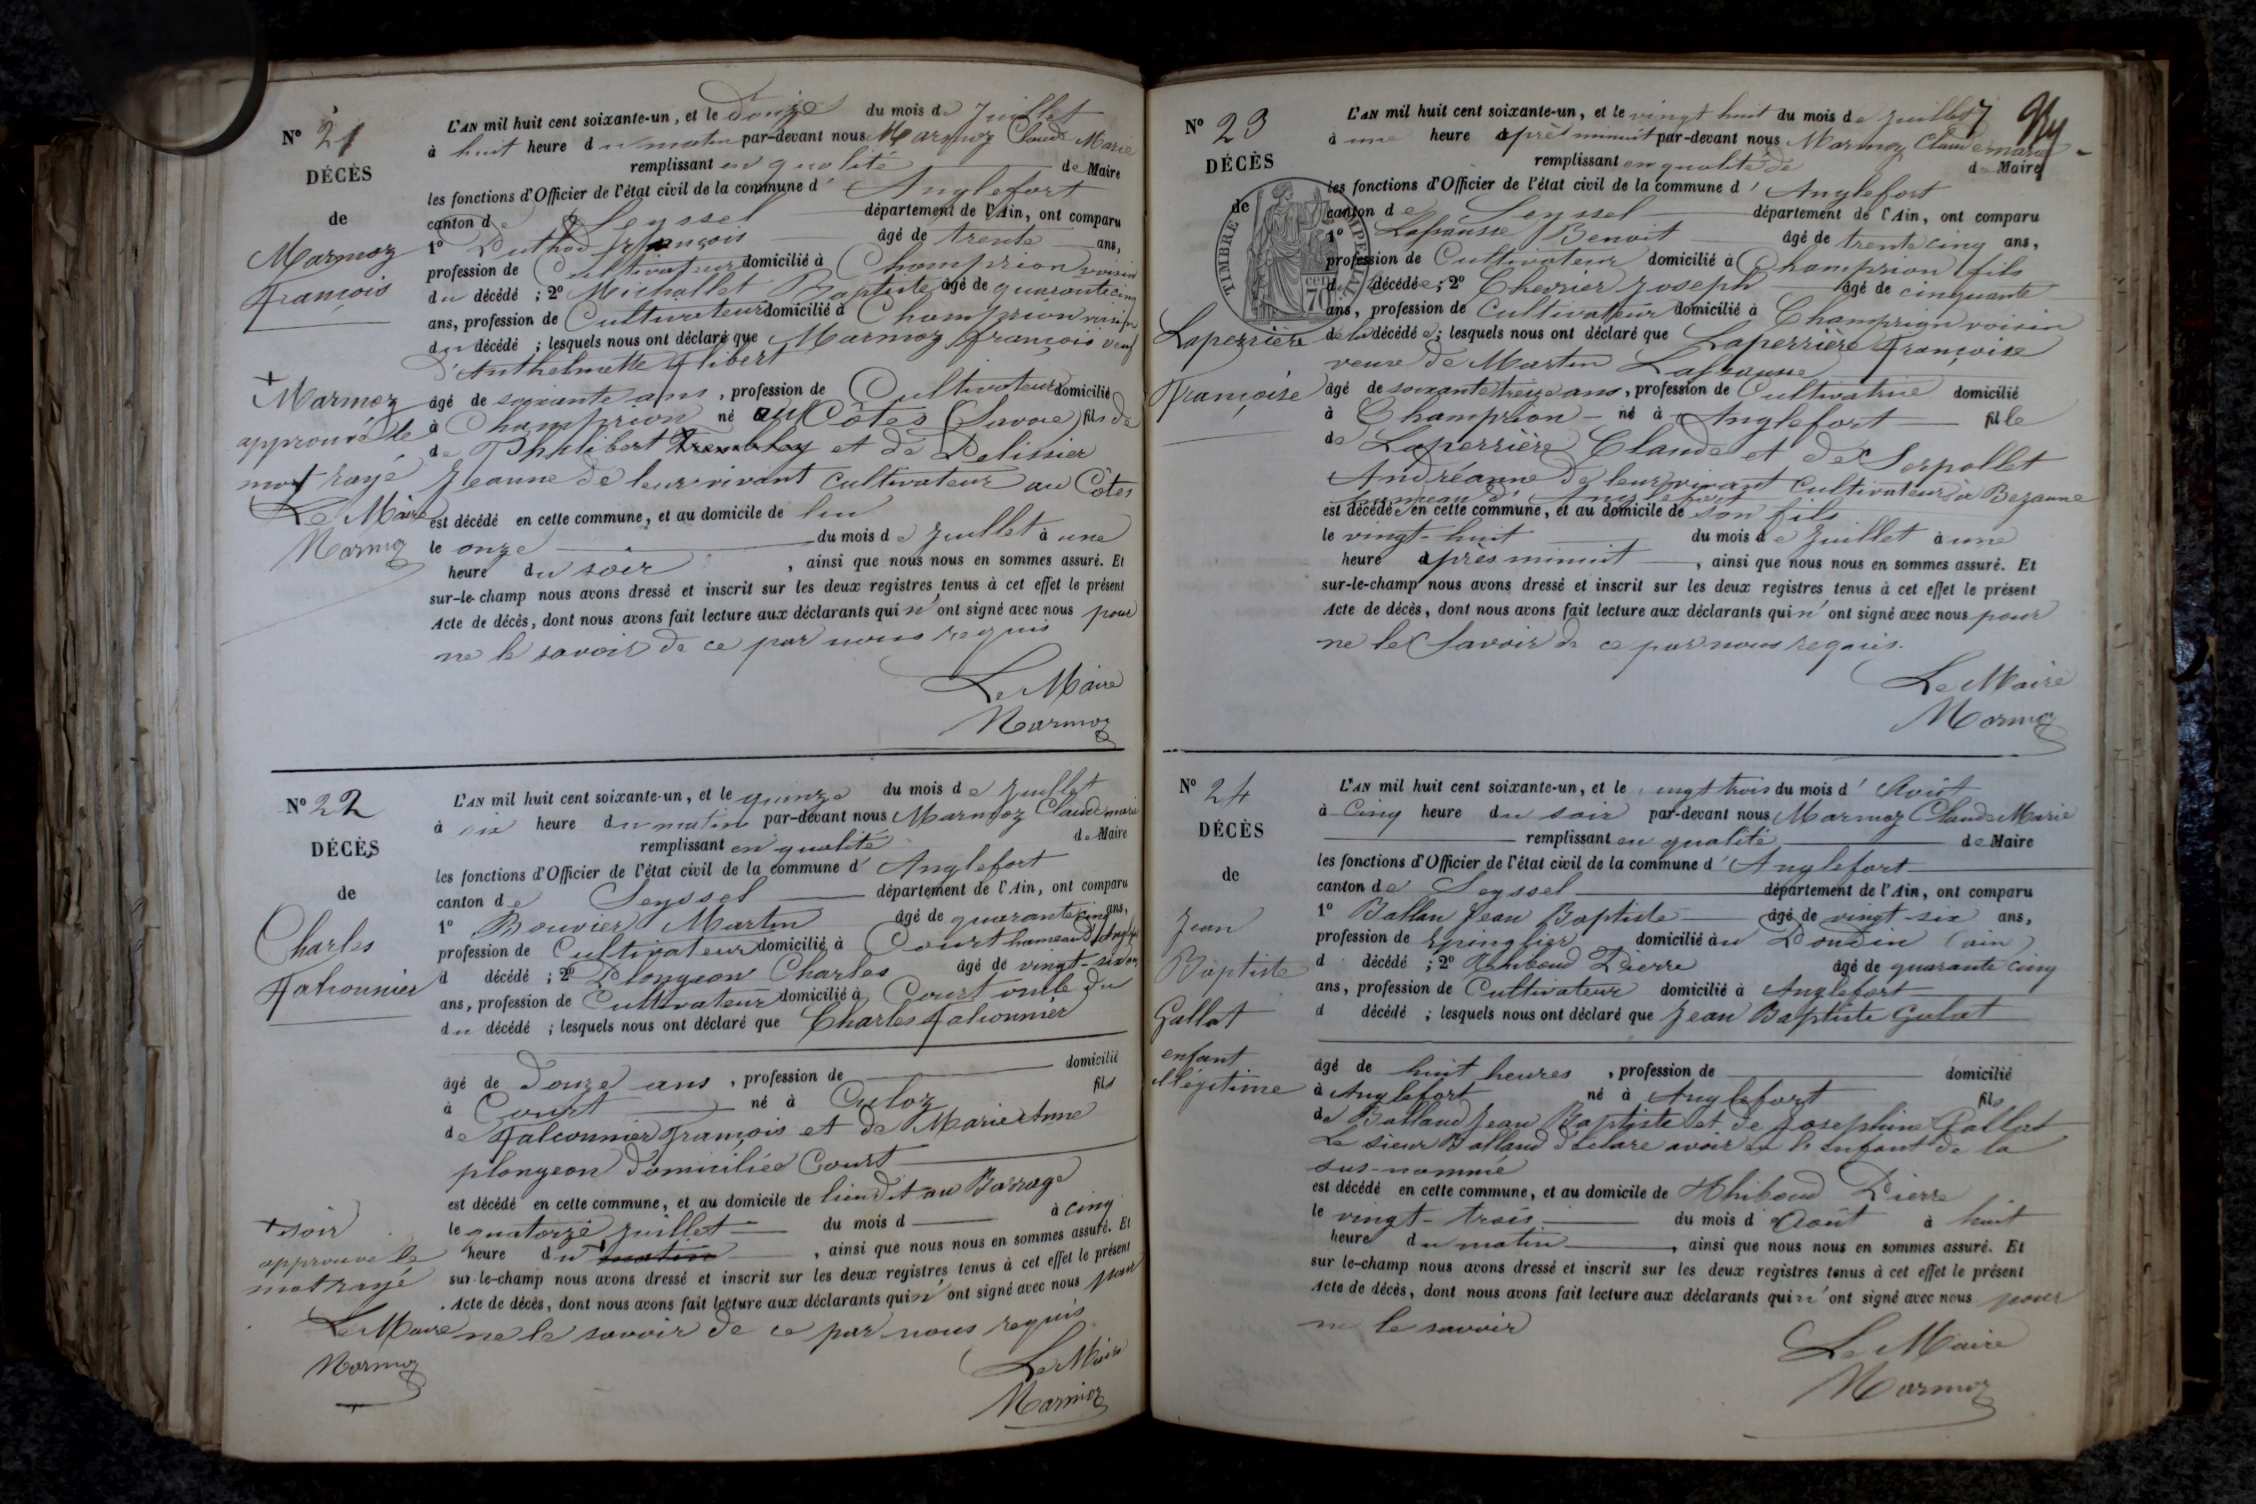 N° 21
DÉCÈS
de
Marmoz
François
+
Marmoz
approuvé le
mot rayé
Le Maire
Marmoz
L'AN mil huit cent soixante-un, et le Douze du mois de Juillet
à huit heure du matin par-devant nous Marmoz Claude Marie
remplissant en qualité de Maire
les fonctions d'Officier de l'état civil de la commune d' Anglefort
canton de Seyssel département de l'Ain, ont comparu
1° François âgé de trente ans,
profession de Cultivateur domicilié à Champrion voisin
du décédé ; 2° Michallet Baptiste âgé de quarante cinq
ans, profession de Cultivateur domicilié à Champrion voisin
du décédé ; lesquels nous ont déclaré que Marmoz François veuf
d'Anthelmette Flibert
âgé de soixante ans, profession de Cultivateur domicilié
à Champrion né aux Côtes (Savoie) fils de
de Philibert Tremblay et de Pelissier
Jeanne de leur vivant cultivateur au Côtes
est décédé en cette commune, et au domicile de lui
le onze du mois de Juillet à une
heure du soir, ainsi que nous nous en sommes assuré. Et
sur-le-champ nous avons dressé et inscrit sur les deux registres tenus à cet effet le présent
Acte de décès, dont nous avons fait lecture aux déclarants qui n'ont signé avec nous pour
ne le savoir de ce par nous requis
Le Maire
Marmoz
N° 22
DÉCÈS
de
Charles
Falconnier
+ soir
approuve le
mot rayé
Le Maire
Marmoz
L'AN mil huit cent soixante-un, et le quinze du mois de Juillet
à six heure du matin par-devant nous Marmoz Claude marie
remplissant en qualité de Maire
les fonctions d'Officier de l'état civil de la commune d' Anglefort
canton de Seyssel département de l'Ain, ont comparu
1° Bouvier Martin âgé de quarante cinq ans,
profession de Cultivateur domicilié à Court hameau d'Anglefort
d décédé ; 2° Plongeon Charles âgé de vingt-six
ans, profession de Cultivateur domicilié à Court oncle du
du décédé ; lesquels nous ont déclaré que Charles Falconnier
âgé de Douze ans, profession de domicilié
à Court né à Culoz fils
de Falconnier François et de Marie Anne
plongeon domiciliée Court
est décédé en cette commune, et au domicile de lieu dit au Barrage
le quatorze juillet du mois d à cinq
heure du matin, ainsi que nous nous en sommes assuré. Et
sur-le-champ nous avons dressé et inscrit sur les deux registres tenus à cet effet le présent
Acte de décès, dont nous avons fait lecture aux déclarants qui n'ont signé avec nous pour
ne le savoir de ce par nous requis
Le Maire
Marmoz
N° 23
DÉCÈS
de
TIMBRE IMPERIAL
70
Laperrière
Françoise
L'AN mil huit cent soixante-un, et le vingt huit du mois de Juillet
à une heure après minuit par-devant nous Marmoz Claude marie
remplissant en qualité de de Maire
les fonctions d'Officier de l'état civil de la commune d' Anglefort
canton de Seyssel département de l'Ain, ont comparu
1° Benoit âgé de trente cinq ans,
profession de Cultivateur domicilié à Champrion fils
de la décédée ; 2° Chevrier Joseph âgé de cinquante
ans, profession de Cultivateur domicilié à Champrion voisin
de la décédée ; lesquels nous ont déclaré que Laperrière Françoise
veuve de Martin
âgé de soixante treize ans, profession de Cultivatrice domicilié
à Champrion né à Anglefort fille
de Laperrière Claude et de Serpollet
Andréanne de leur vivant cultivateurs à Bezonne
hameau d'Anglefort
est décédé en cette commune, et au domicile de son fils
le vingt-huit du mois de Juillet à une
heure après minuit, ainsi que nous nous en sommes assuré. Et
sur-le-champ nous avons dressé et inscrit sur les deux registres tenus à cet effet le présent
Acte de décès, dont nous avons fait lecture aux déclarants qui n'ont signé avec nous pour
ne le Savoir de ce par nous requis.
Le Maire
Marmoz
N° 24
DÉCÈS
de
Jean
Baptiste
Gallat
enfant
illégitime
L'AN mil huit cent soixante-un, et le vingt trois du mois d' Août
à cinq heure du soir par-devant nous Marmoz Claude Marie
remplissant en qualité de Maire
les fonctions d'Officier de l'état civil de la commune d' Anglefort
canton de Seyssel département de l'Ain, ont comparu
1° Ballan Jean Baptiste âgé de vingt-six ans,
profession de Epinglier domicilié au Poncin (ain)
d décédé ; 2° Thiboud Pierre âgé de quarante cinq
ans, profession de Cultivateur domicilié à Anglefort
d décédé ; lesquels nous ont déclaré que Jean Baptiste Galat
âgé de huit heures, profession de domicilié
à Anglefort né à Anglefort fils
de Balland Jean Baptiste et de Josephine Gallat
Le sieur Balland déclare avoir eu le enfant de la
sus-nommée
est décédé en cette commune, et au domicile de Thiboud Pierre
le vingt-trois du mois d'Août à huit
heure du matin, ainsi que nous nous en sommes assuré. Et
sur le-champ nous avons dressé et inscrit sur les deux registres tenus à cet effet le présent
Acte de décès, dont nous avons fait lecture aux déclarants qui n'ont signé avec nous pour
ne le savoir
Le Maire
Marmoz